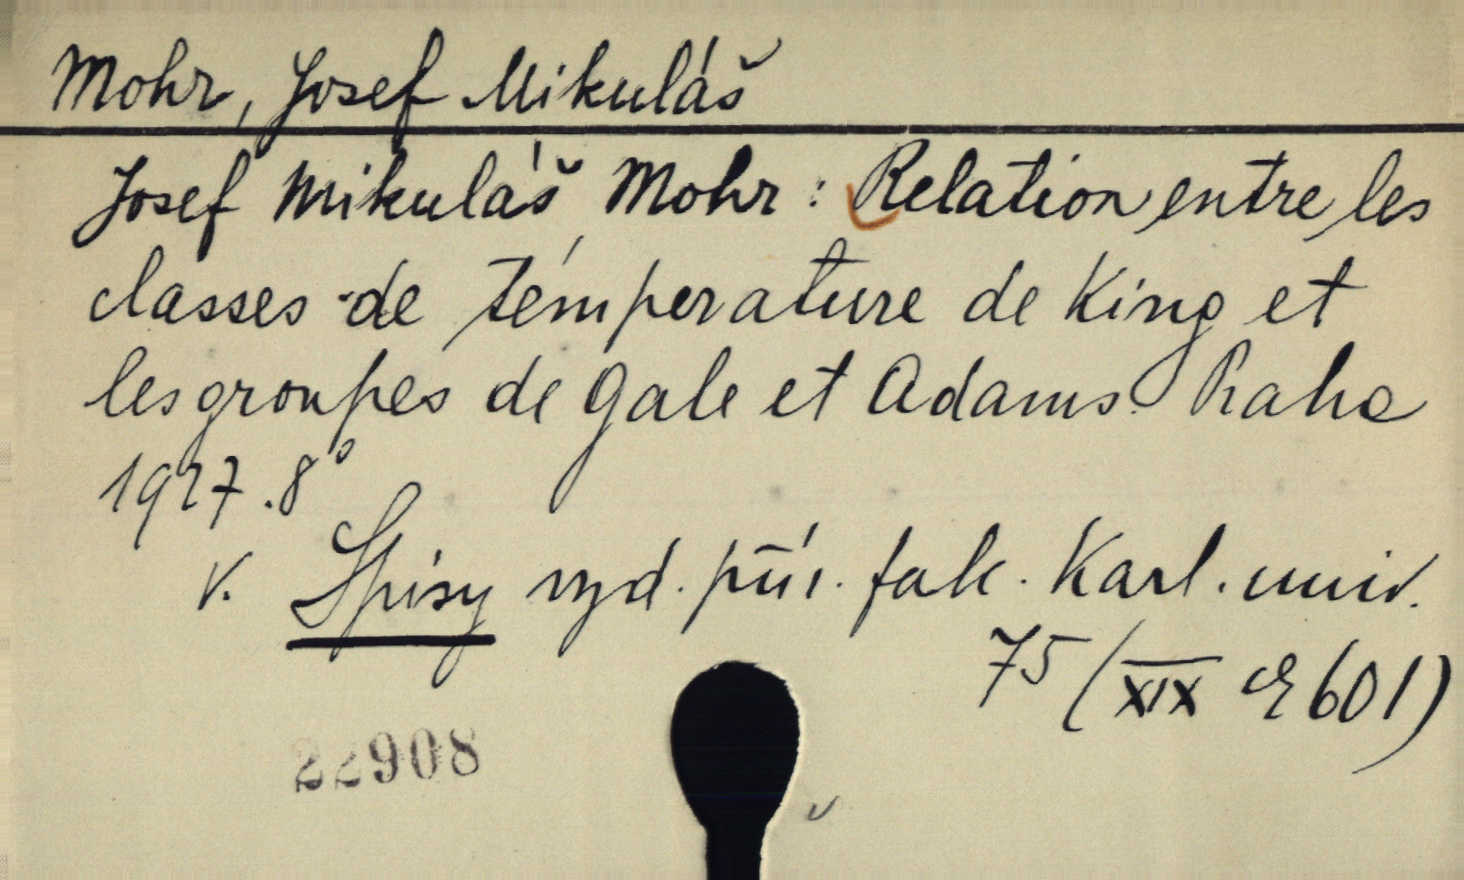 Mohr, Josef Mikuláš
Josef Mikuláš Mohr: Relation entre les
classes de témperature de King et
les groupes de Gale et Adams. Praha
1927. 8°
V. Spisy vyd. přír. fak. Karl. univ.
75 (XIX E 601)
22908